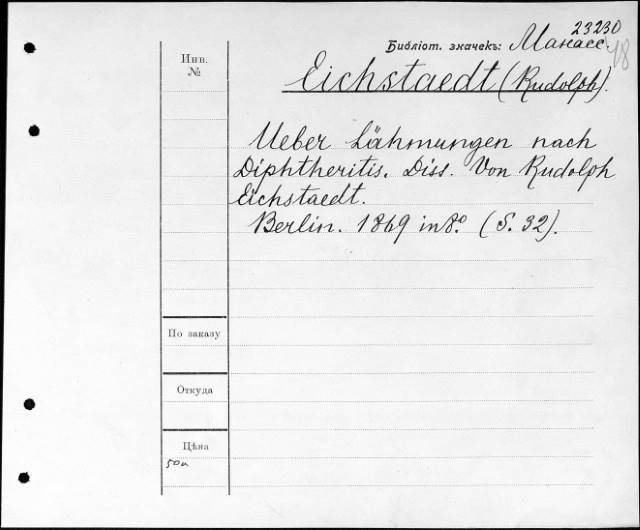 23230
Библіот. значекъ: Манасс. 48
Инв.
№
Eichstaedt (Rudolph).
Ueber Lähmungen nach
Diphtheritis. Diss. Von Rudolph
Eichstaedt.
Berlin. 1869 in 8º. (S. 32).
По заказу
Откуда
Цѣна
50к